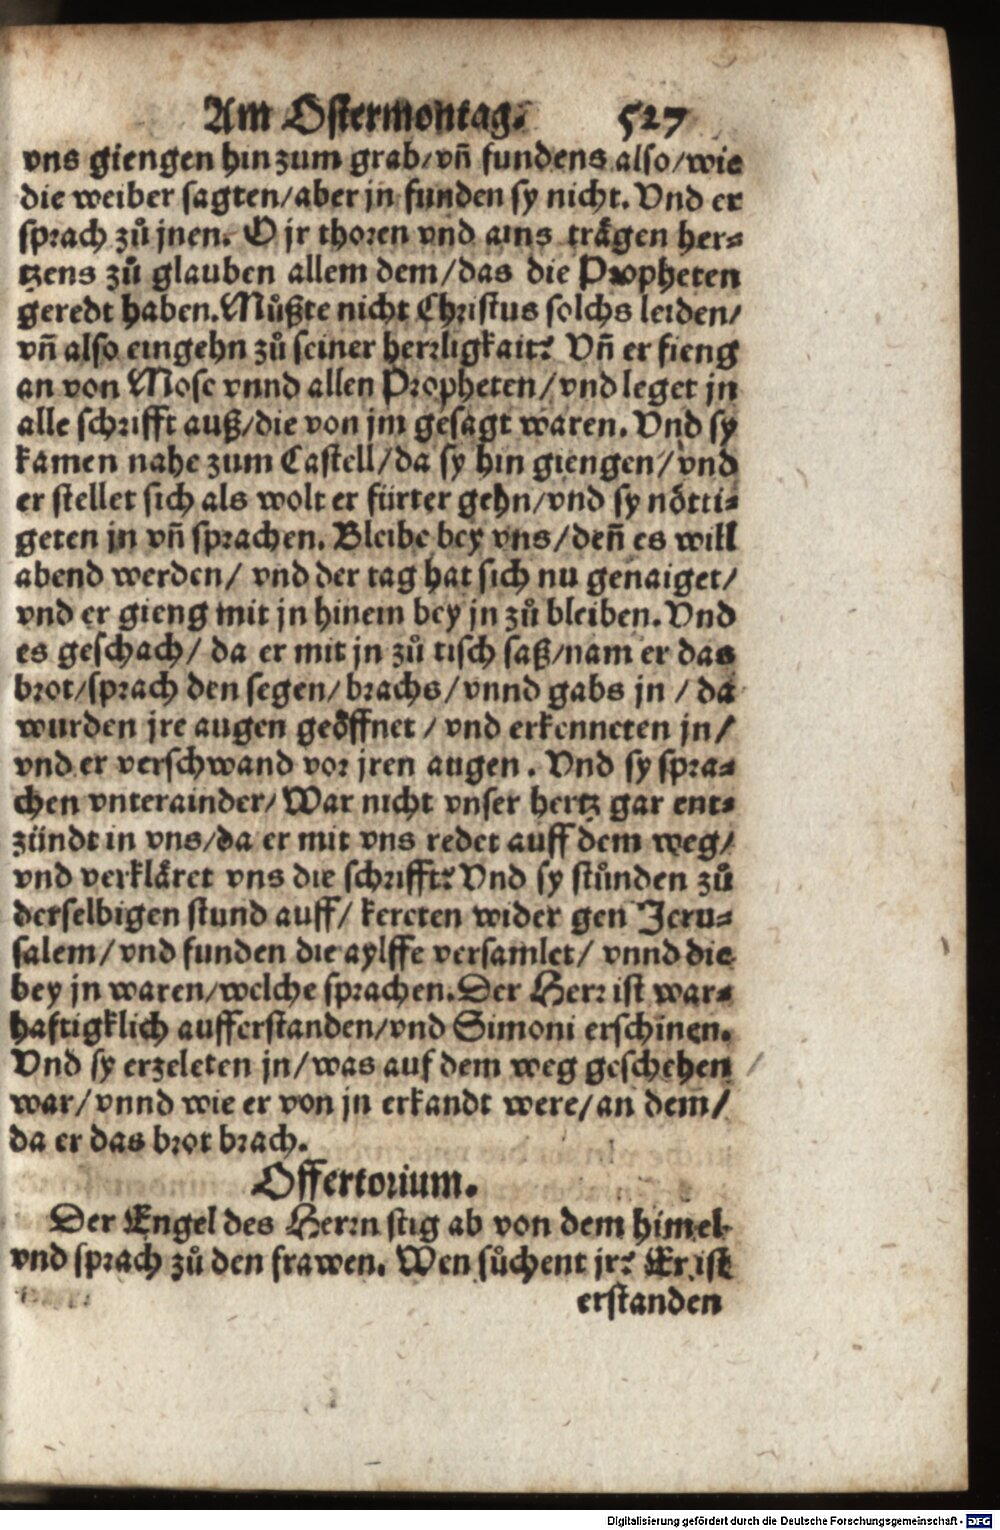 Am Ostermontag. 527
vns giengen hin zum grab/vñ fundens also/wie
die weiber sagten/aber jn funden sy nicht. Vnd er
sprach zů jnen. O jr thoren vnd ains trägen her-
tzens zů glauben allem dem/das die Propheten
geredt haben. Můßte nicht Christus solchs leiden/
vñ also eingehn zů seiner herrligkait? Vñ er fieng
an von Mose vnnd allen Propheten/vnd leget jn
alle schrifft auß/die von jm gesagt waren. Vnd sy
kamen nahe zum Castell/da sy hin giengen/vnd
er stellet sich als wolt er fürter gehn/vnd sy nötti-
geten jn vñ sprachen. Bleibe bey vns/deñ es will
abend werden/ vnd der tag hat sich nu genaiget/
vnd er gieng mit jn hinein bey jn zů bleiben. Vnd
es geschach/ da er mit jn zů tisch saß/nam er das
brot/sprach den segen/brachs/vnnd gabs jn / da
wurden jre augen geöffnet / vnd erkenneten jn/
vnd er verschwand vor jren augen. Vnd sy spra-
chen vnterainder/ War nicht vnser hertz gar ent-
zündt in vns/da er mit vns redet auff dem weg/
vnd verkläret vns die schrifft? Vnd sy stůnden zů
derselbigen stund auff/ kereten wider gen Jeru-
salem/vnd funden die aylffe versamlet/ vnnd die
bey jn waren/welche sprachen. Der Herr ist war-
hafftigklich aufferstanden/vnd Simoni erschinen.
Vnd sy erzeleten jn/was auf dem weg geschehen
war/vnnd wie er von jn erkandt were/an dem/
da er das brot brach.
Offertorium.
Der Engel des Herrn stig ab von dem himel
vnd sprach zů den frawen. Wen sůchent jr? Er ist
erstanden
Digitalisierung gefördert durch die Deutsche Forschungsgemeinschaft - DFG